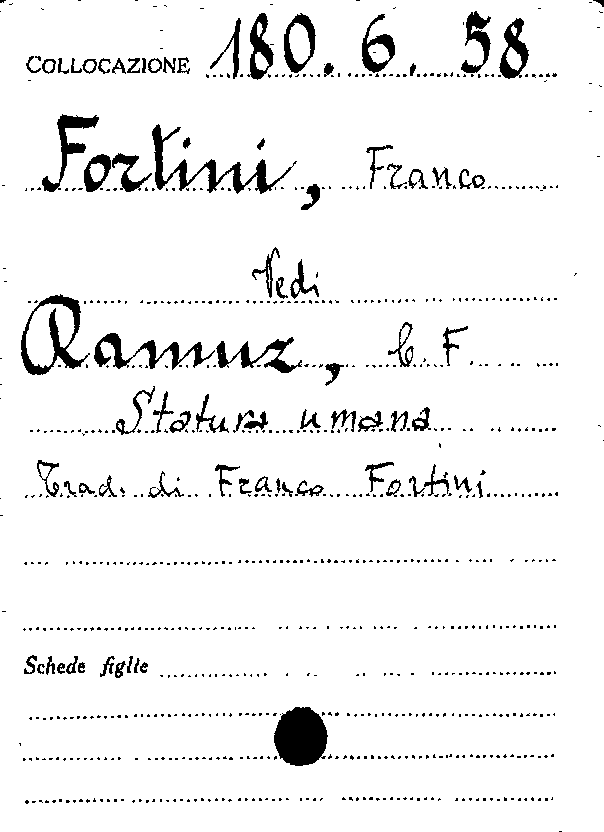 COLLOCAZIONE 180. 6. 58
Fortini, Franco
Vedi
Ramuz, C. F.
Statura umana
Trad. di Franco Fortini
Schede figlie